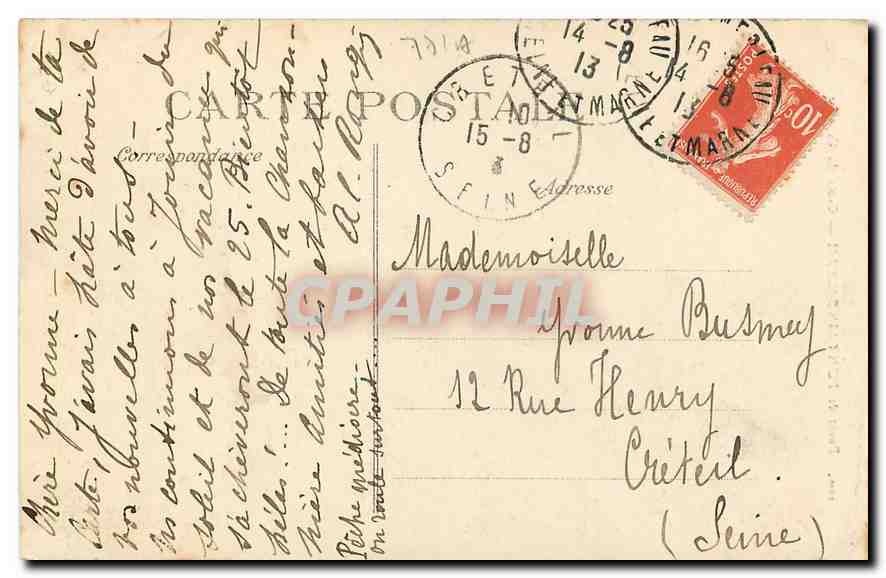 7717A
CARTE POSTALE
Correspondance
Adresse
Chère Yvonne - merci de ta
carte, j'avais hâte d'avoir de
vos nouvelles à tous -
continuons à jouir du
soleil et de nos vacances qui
s'achèveront le 25. Bientôt
hélas!... De toute la Chanson-
nière amitiés et baisers
Al.
Pêche médiocre -
on roule surtout...
Mademoiselle
Yvonne Busmey
12 Rue Henry
Créteil
(Seine)
CRETEIL
10
15-8
SEINE
14 -8
13
SEINE ET MARNE
16
14 -8
13
SEINE ET MARNE
POSTES
10c
REPUBLIQUE FRANÇAISE
CPAPHIL